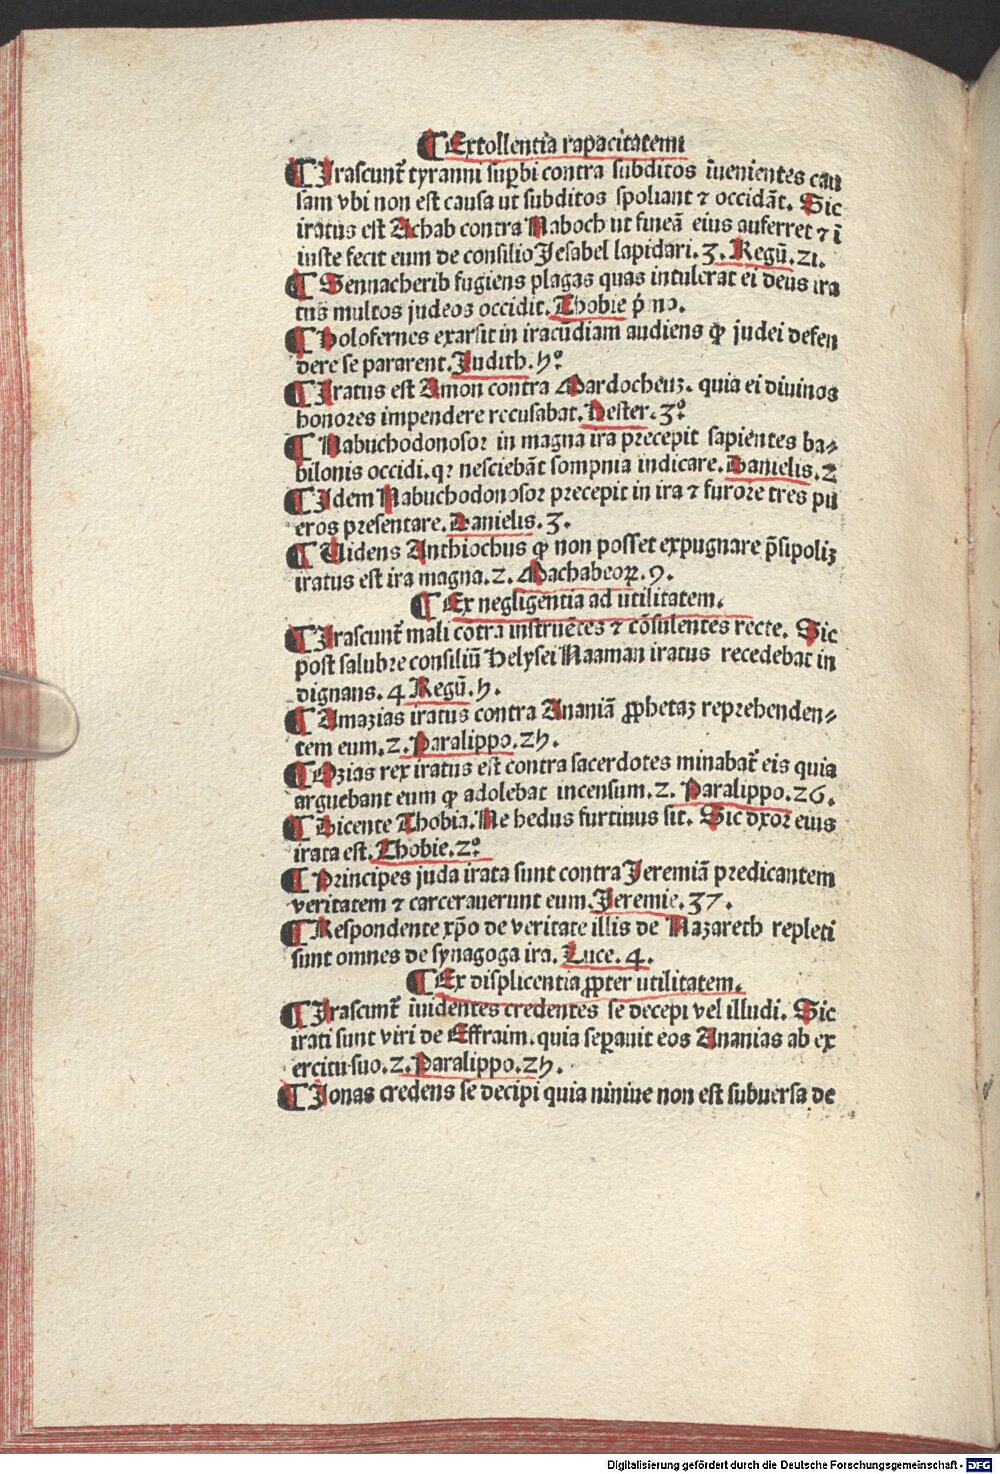 ¶ Extollentia rapacitatem
¶ Irascunt᷑ tyranni sup̱bi contra subditos īuenientes cau
sam vbi non est causa ut subditos spoliant ⁊ occidāt. Sic
iratus est Achab contra Naboch ut fineā eius auferret ⁊ ī
iuste fecit eum de consilio Jesabel lapidari. 3. Regū. 21.
¶ Sennacherib fugiens plagas quas intulerat ei deus ira
tus multos judeos occidit. Thobie p̄ mo.
¶ Holofernes exarsit in iracūdiam audiens ꝙ judei defen
dere se pararent. Judith. 5°
¶ Iratus est Amon contra Mardocheuz. quia ei diuinos
honores impendere recusabat. Hester. 3°
¶ Nabuchodonosor in magna ira precepit sapientes ba⸗
bilonis occidi. qꝛ nesciebāt sompnia indicare. Danielis. 2
¶ Idem Nabuchodonosor precepit in ira ⁊ furore tres pu
eros presentare. Danielis. 3.
¶ Uidens Anthiochus ꝙ non posset expugnare p̄sipoliz
iratus est ira magna. 2. Machabeoꝝ. 9.
¶ Ex negligentia ad utilitatem.
¶ Irascunt᷑ mali cōtra instruētes ⁊ cōsulentes recte. Sic
post salubre consiliū Helysei Naaman iratus recedebat in
dignans. 4 Regū. 5.
¶ Amazias iratus contra Ananiā ꝓphetaz reprehenden⸗
tem eum. 2. Paralippo. 25.
¶ Ozias rex iratus est contra sacerdotes minabat᷑ eis quia
arguebant eum ꝙ adolebat incensum. 2. Paralippo. 26.
¶ Dicente Thobia. Ne hedus furtiuus sit. Sic vxor eius
irata est. Thobie. 2°
¶ Principes juda irata sunt contra Jeremiā predicantem
veritatem ⁊ carcerauerunt eum. Jeremie. 37.
¶ Respondente xp̄o de veritate illis de Nazareth repleti
sunt omnes de synagoga ira. Luce. 4.
¶ Ex displicentia ꝓpter utilitatem.
¶ Irascunt᷑ īuidentes credentes se decepi vel illudi. Sic
irati sunt viri de Effraim. quia sep̱auit eos Ananias ab ex
ercitu suo. 2. Paralippo. 25.
¶ Jonas credens se decipi quia niniue non est subuersa de
Digitalisierung gefördert durch die Deutsche Forschungsgemeinschaft - DFG